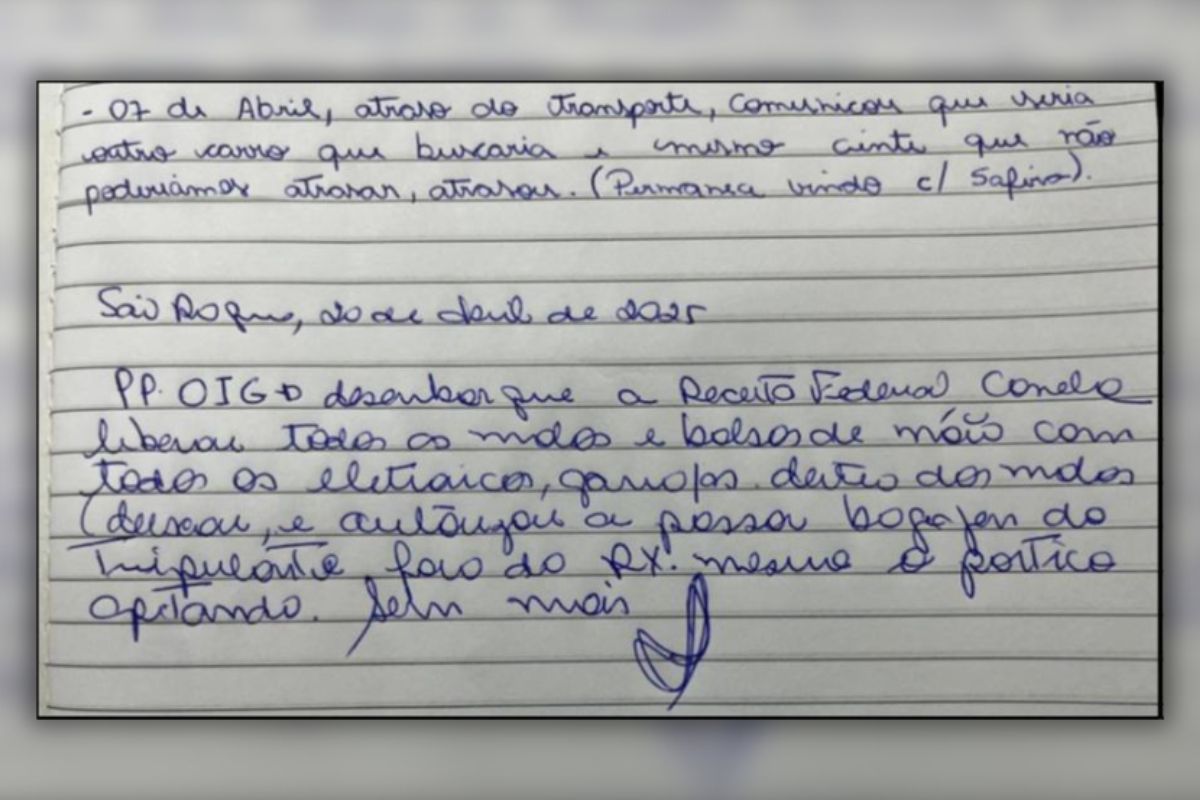 - 07 de Abril, atraso do transporte, comunicou que seria
outro carro que buscaria e mesmo cinte que não
poderiamos atrasar, atrasou. (Permanea vindo c/ Safira).
São Roque, 20 de Abril de 2025
PP. OIG desenbarque a Receita Federal Canelo
liberou todos as malas e bolsas de mão com
todos os eletraicos, garrafas dentro das malas
(deixou, e autorizou a passar bagagem do
tripulante fora do RX. mesmo o portico
apitando. Sem mais